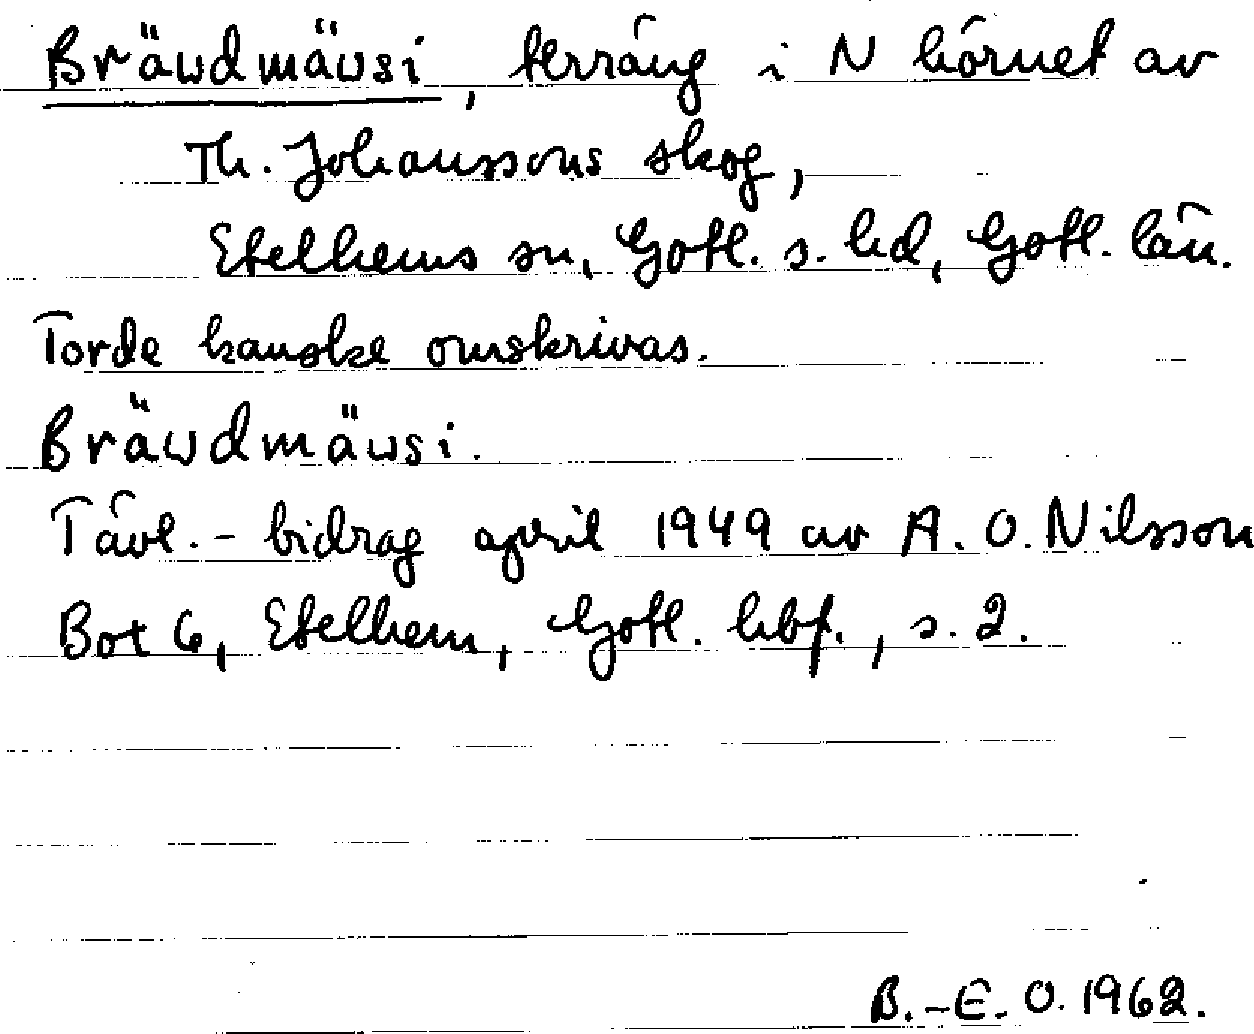 Bräudmäusi, terräng i N hörnet av
Th. Johanssons skog,
Etelhems sn, Gotl. s. hd, Gotl. län.
Torde kanske omskrivas.
Bräudmäusi.
Tävl.-bidrag april 1949 av A. O. Nilsson
Box 6, Etelhem, Gotl. hbf., s. 2.
B.-E. O. 1962.